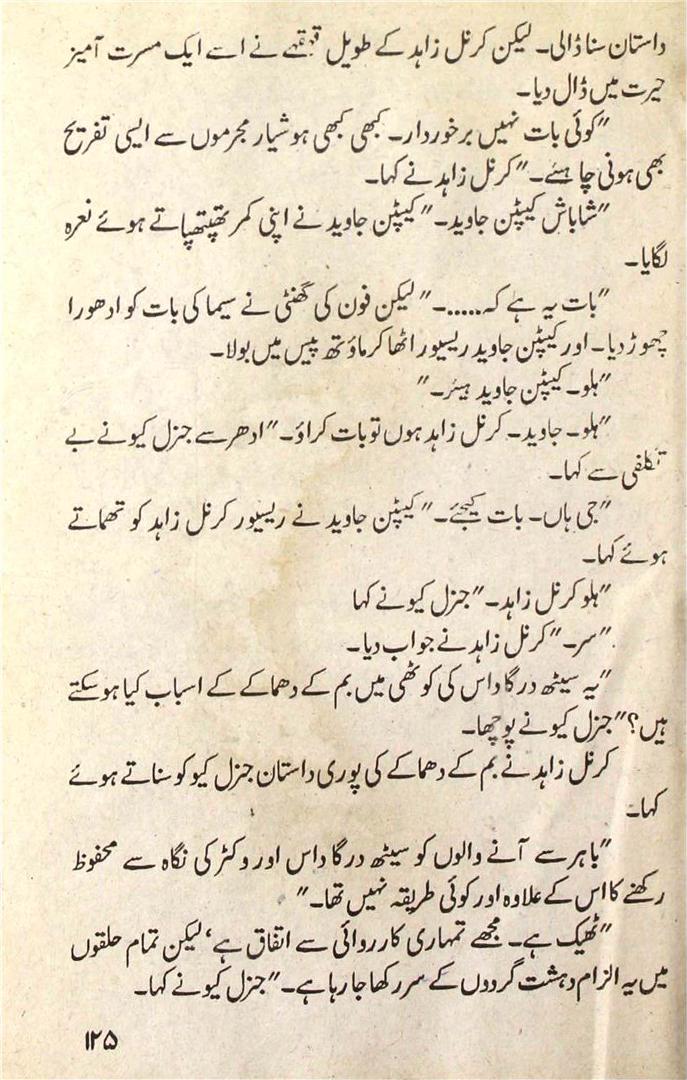 داستان سنا ڈالی۔ لیکن کرنل زاہد کے طویل قہقہے نے اسے ایک مسرت آمیز
حیرت میں ڈال دیا۔
”کوئی بات نہیں برخوردار۔ کبھی کبھی ہوشیار مجرموں سے ایسی تفریح
بھی ہونی چاہئے۔“ کرنل زاہد نے کہا۔
”شاباش کیپٹن جاوید۔“ کیپٹن جاوید نے اپنی کمر تھپتھپاتے ہوئے نعرہ
لگایا۔
”بات یہ ہے کہ.....۔“ لیکن فون کی گھنٹی نے سیما کی بات کو ادھورا
چھوڑ دیا۔ اور کیپٹن جاوید ریسیور اٹھا کر ماؤتھ پیس میں بولا۔
”ہلو۔ کیپٹن جاوید ہیئر۔“
”ہلو۔ جاوید۔ کرنل زاہد ہوں تو بات کراؤ۔“ ادھر سے جنرل کیو نے بے
تکلفی سے کہا۔
”جی ہاں۔ بات کیجئے۔“ کیپٹن جاوید نے ریسیور کرنل زاہد کو تھماتے
ہوئے کہا۔
”ہلو کرنل زاہد۔“ جنرل کیو نے کہا
”سر۔“ کرنل زاہد نے جواب دیا۔
”یہ سیٹھ درگا داس کی کوٹھی میں بم کے دھماکے کے اسباب کیا ہو سکتے
ہیں؟“ جنرل کیو نے پوچھا۔
کرنل زاہد نے بم کے دھماکے کی پوری داستان جنرل کیو کو سناتے ہوئے
کہا۔
”باہر سے آنے والوں کو سیٹھ درگا داس اور وکٹر کی نگاہ سے محفوظ
رکھنے کا اس کے علاوہ اور کوئی طریقہ نہیں تھا۔“
”ٹھیک ہے۔ مجھے تمہاری کارروائی سے اتفاق ہے‘ لیکن تمام حلقوں
میں یہ الزام دہشت گردوں کے سر رکھا جا رہا ہے۔“ جنرل کیو نے کہا۔
۱۲۵